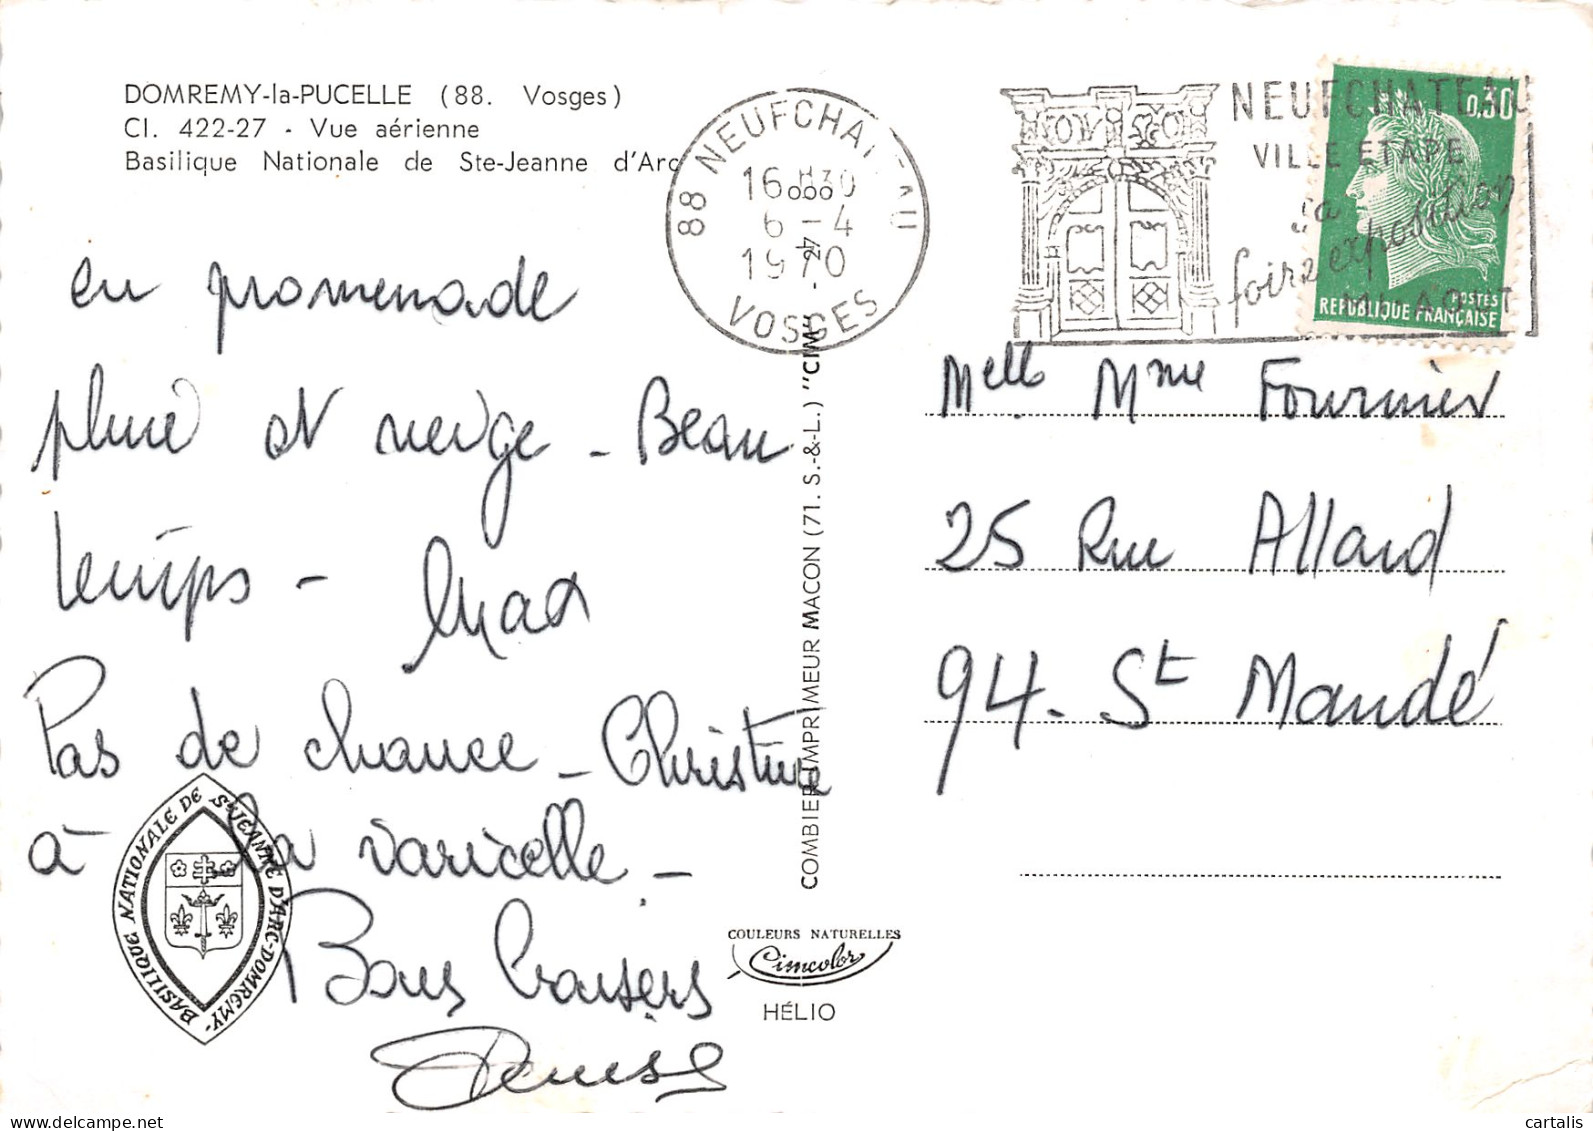 DOMREMY-la-PUCELLE (88. Vosges)
Cl. 422-27 - Vue aérienne
Basilique Nationale de Ste-Jeanne d'Arc
88 NEUFCHATEAU
16 H30
6-4
1970
VOSGES
NEUFCHATEAU
VILLE ETAPE
sa
foire exposition
MI-AOUT
0,30
POSTES
REPUBLIQUE FRANÇAISE
en promenade
pluie et neige - Beau
temps - Max
Pas de chance - Christine
à la varicelle -
Bons baisers
Denise
Melle Mme Fournier
25 Rue Allard
94. St Mandé
COMBIER IMPRIMEUR MACON (71. S.-&-L.) "CIM" - 27
BASILIQUE NATIONALE DE Ste JEANNE D'ARC-DOMREMY-
COULEURS NATURELLES
Cimcolor
HÉLIO
delcampe.net
cartalis